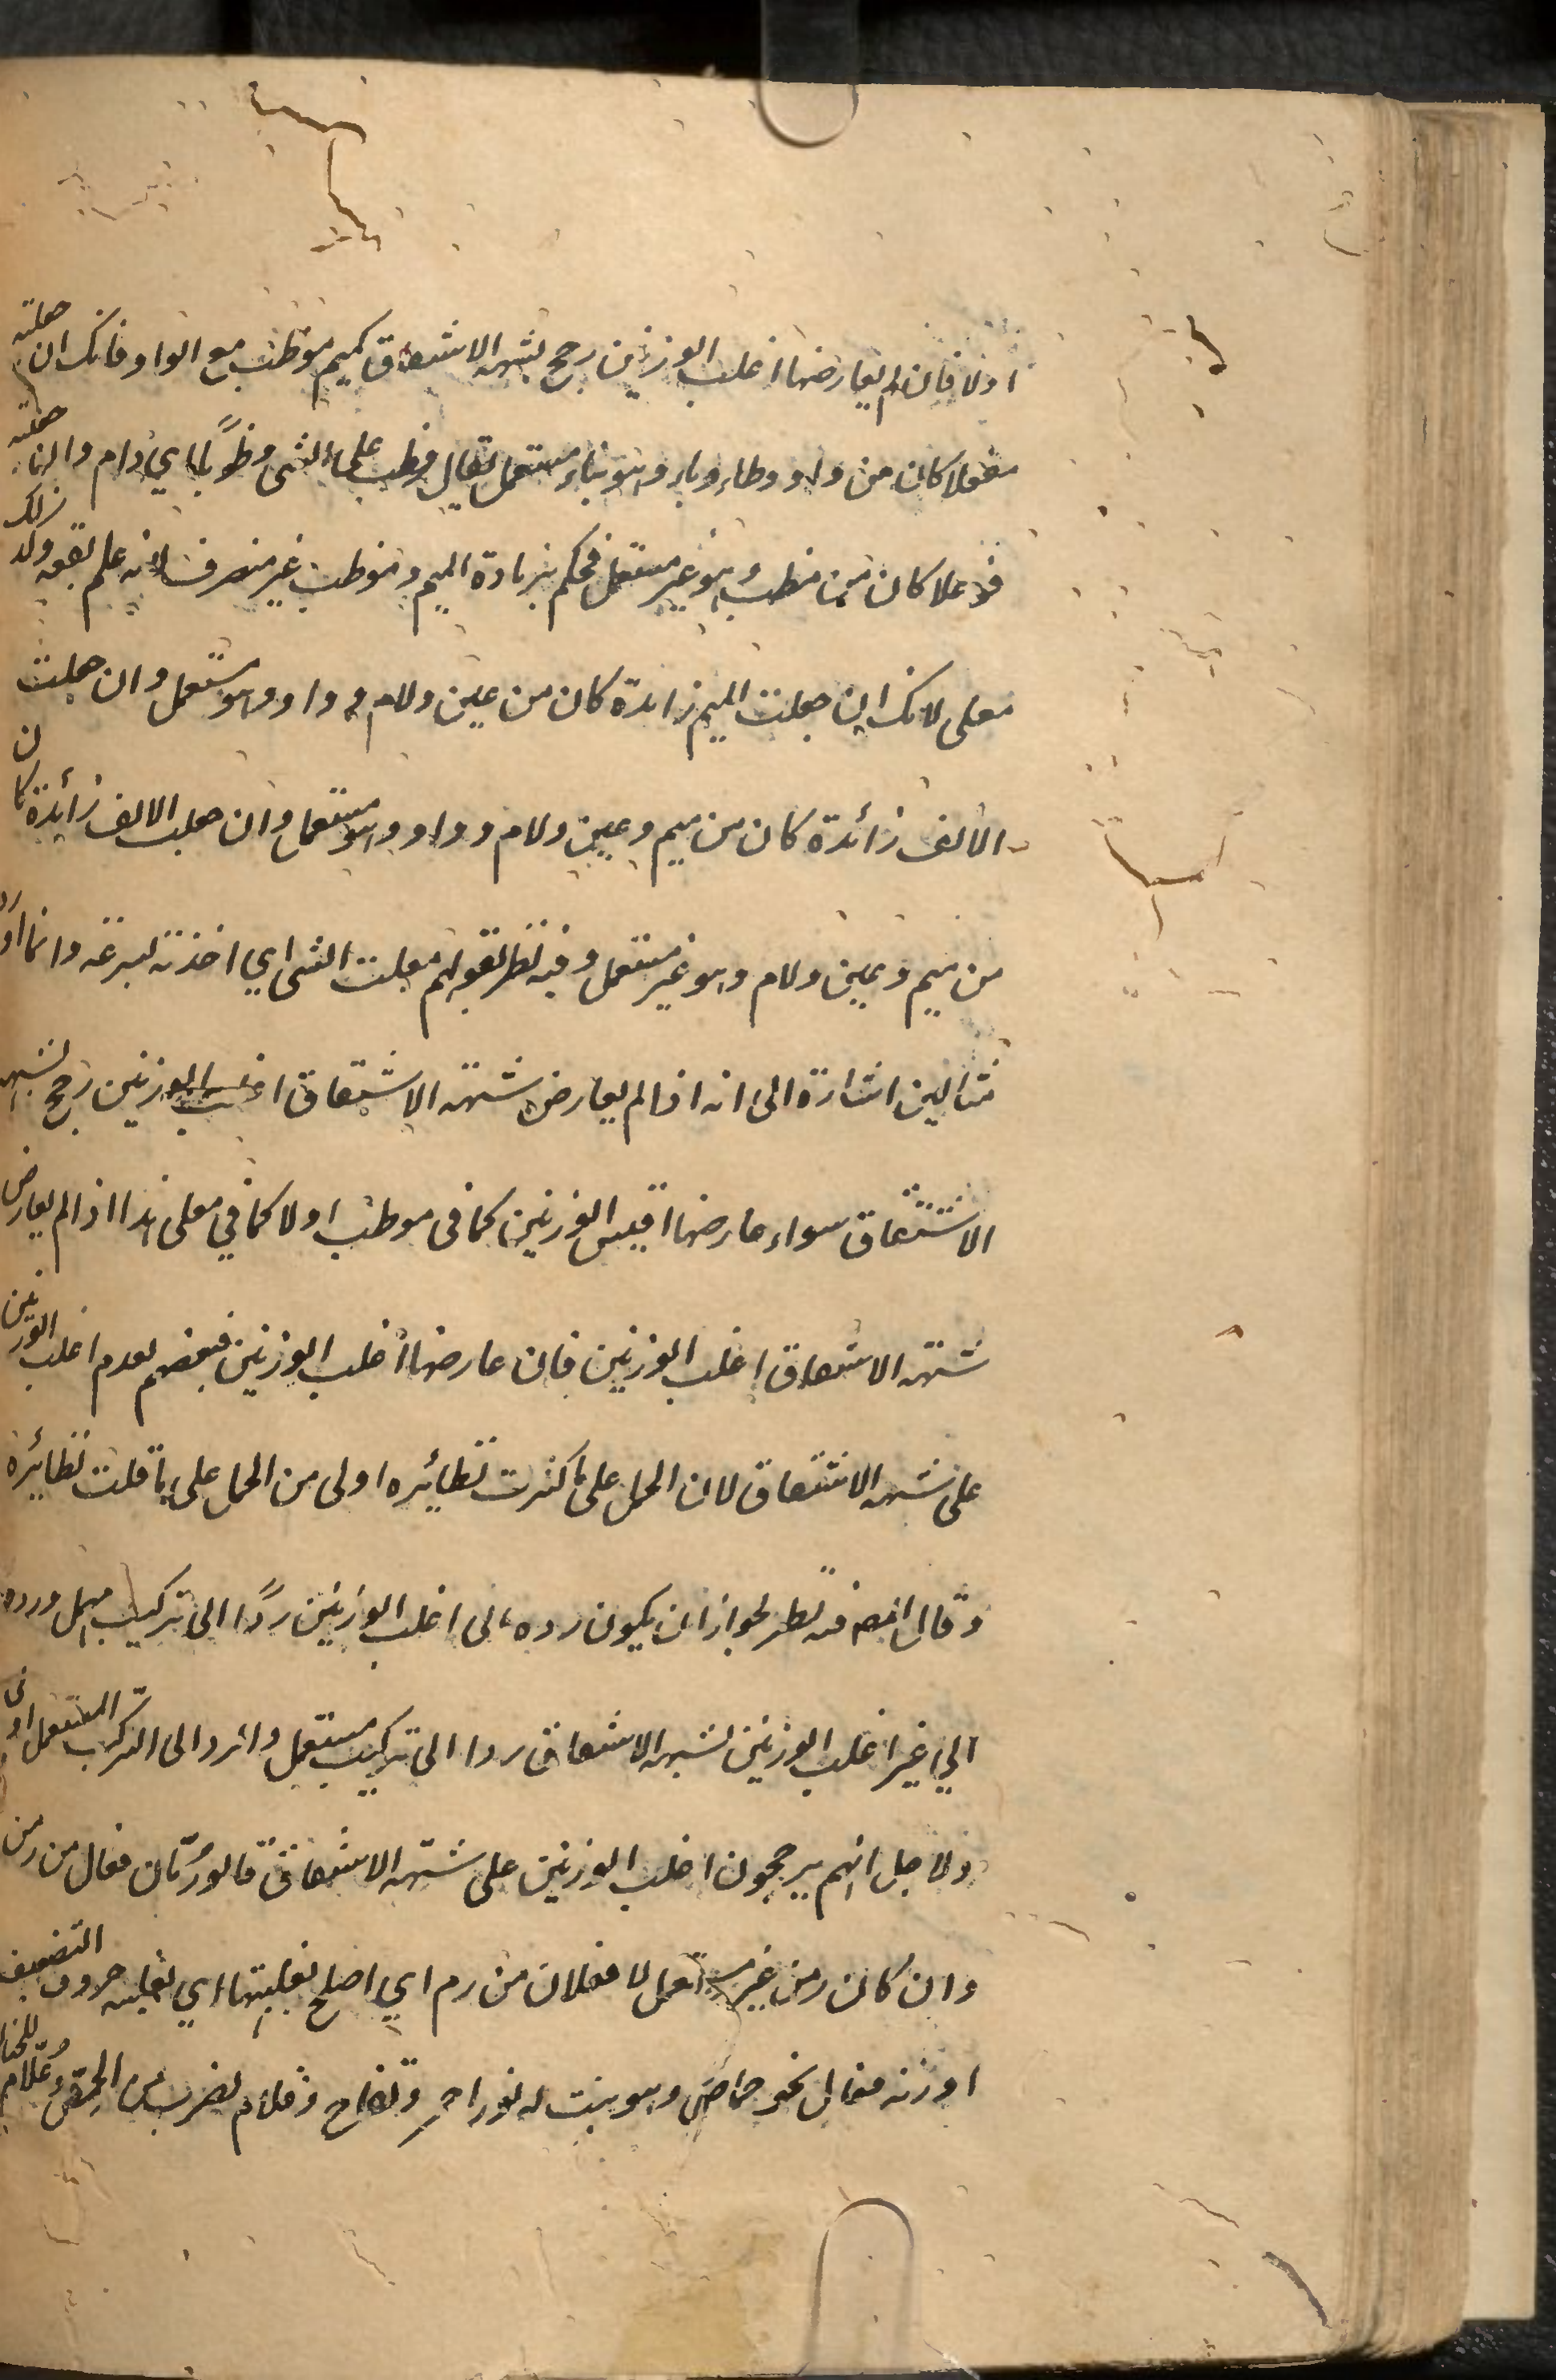 اولا فان لم يعارضها اغلب الوزنين رجح بشبهه الاشتقاق كميم موظب مع الواو فانك ان جعلته
مفعلا كان من واو وظاء وباء وهو بناء مستعمل يقال وظب على الشى وظوبًا اي دام وان جعلته
فوعلا كان من مظب وهو غير مستعمل فحكم بزيادة الميم وموظب غير منصرف لانه علم بقعه وكذلك
معلى لانك ان جعلت الميم زائدة كان من عين ولام و واو وهو مستعمل وان جعلت
الالف زائدة كان من ميم وعين ولام و واو وهو مستعمل وان جعلت الالف زائدة كان
من ميم وعين ولام وهو غير مستعمل وفيه نظر لقولهم معلت الشى اي اخذته بسرعة وانما اورد
مثالين اشارة الى انه اذا لم يعارض شبهة الاشتقاق اغلب الوزنين رجح بشبهه
الاشتقاق سواء عارضها اقيس الوزنين كما فى موظب اولا كما في معلى هذا اذا لم يعارض
شبهة الاشتقاق اغلب الوزنين فان عارضها اغلب الوزنين فبعضهم يقدم اغلب الوزنين
على شبهه الاشتقاق لان الحمل على ما كثرت نظائره اولى من الحمل على ما قلت نظائره
وقال المص فيه نظر لجواز ان يكون رده الى اغلب الوزنين ردًا الى تركيب مهمل ورده
الي غير اغلب الوزنين لشبهه الاشتقاق ردا الى تركيب مستعمل والرد الى التركيب المستعمل اولى
ولاجل انهم يرجحون اغلب الوزنين على شبهة الاشتقاق قالو رُمّان فعال من رمن
وان كان رمن غير مستعمل لا فعلان من رم اي اصلح لغلبتها اي لغلبه حروف التضعيف
او زنه فعال نحو حماض وهو نبت له نور احمر وتفاح وقلام لضرب من الحمض وعُلّام للحناء